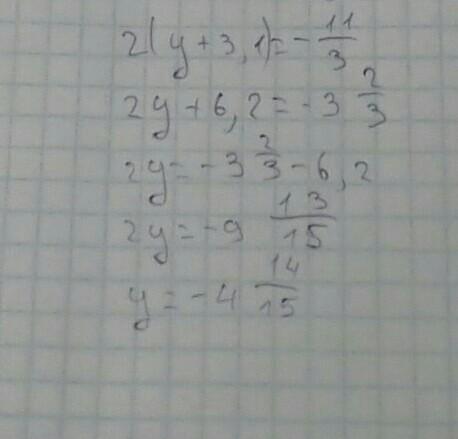 2(y+3,1)=-11/3
2y+6,2=-3 2/3
2y=-3 2/3-6,2
2y=-9 13/15
y=-4 14/15